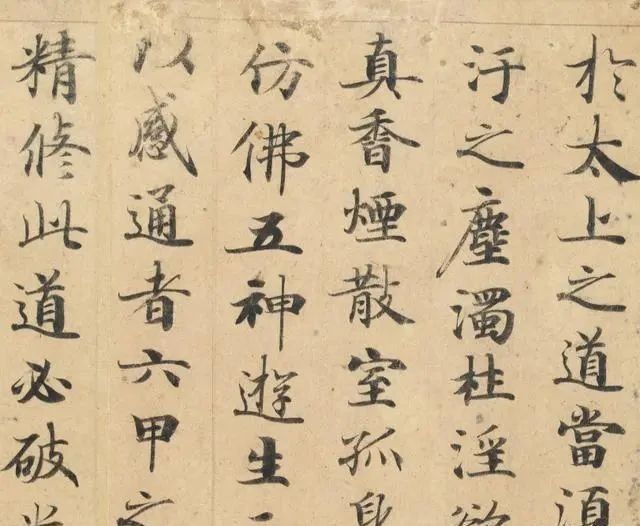 於太上之道當須
汙之塵濁杜淫欲
真香煙散室孤身
仿佛五神遊生
以感通者六甲之
精修此道必破